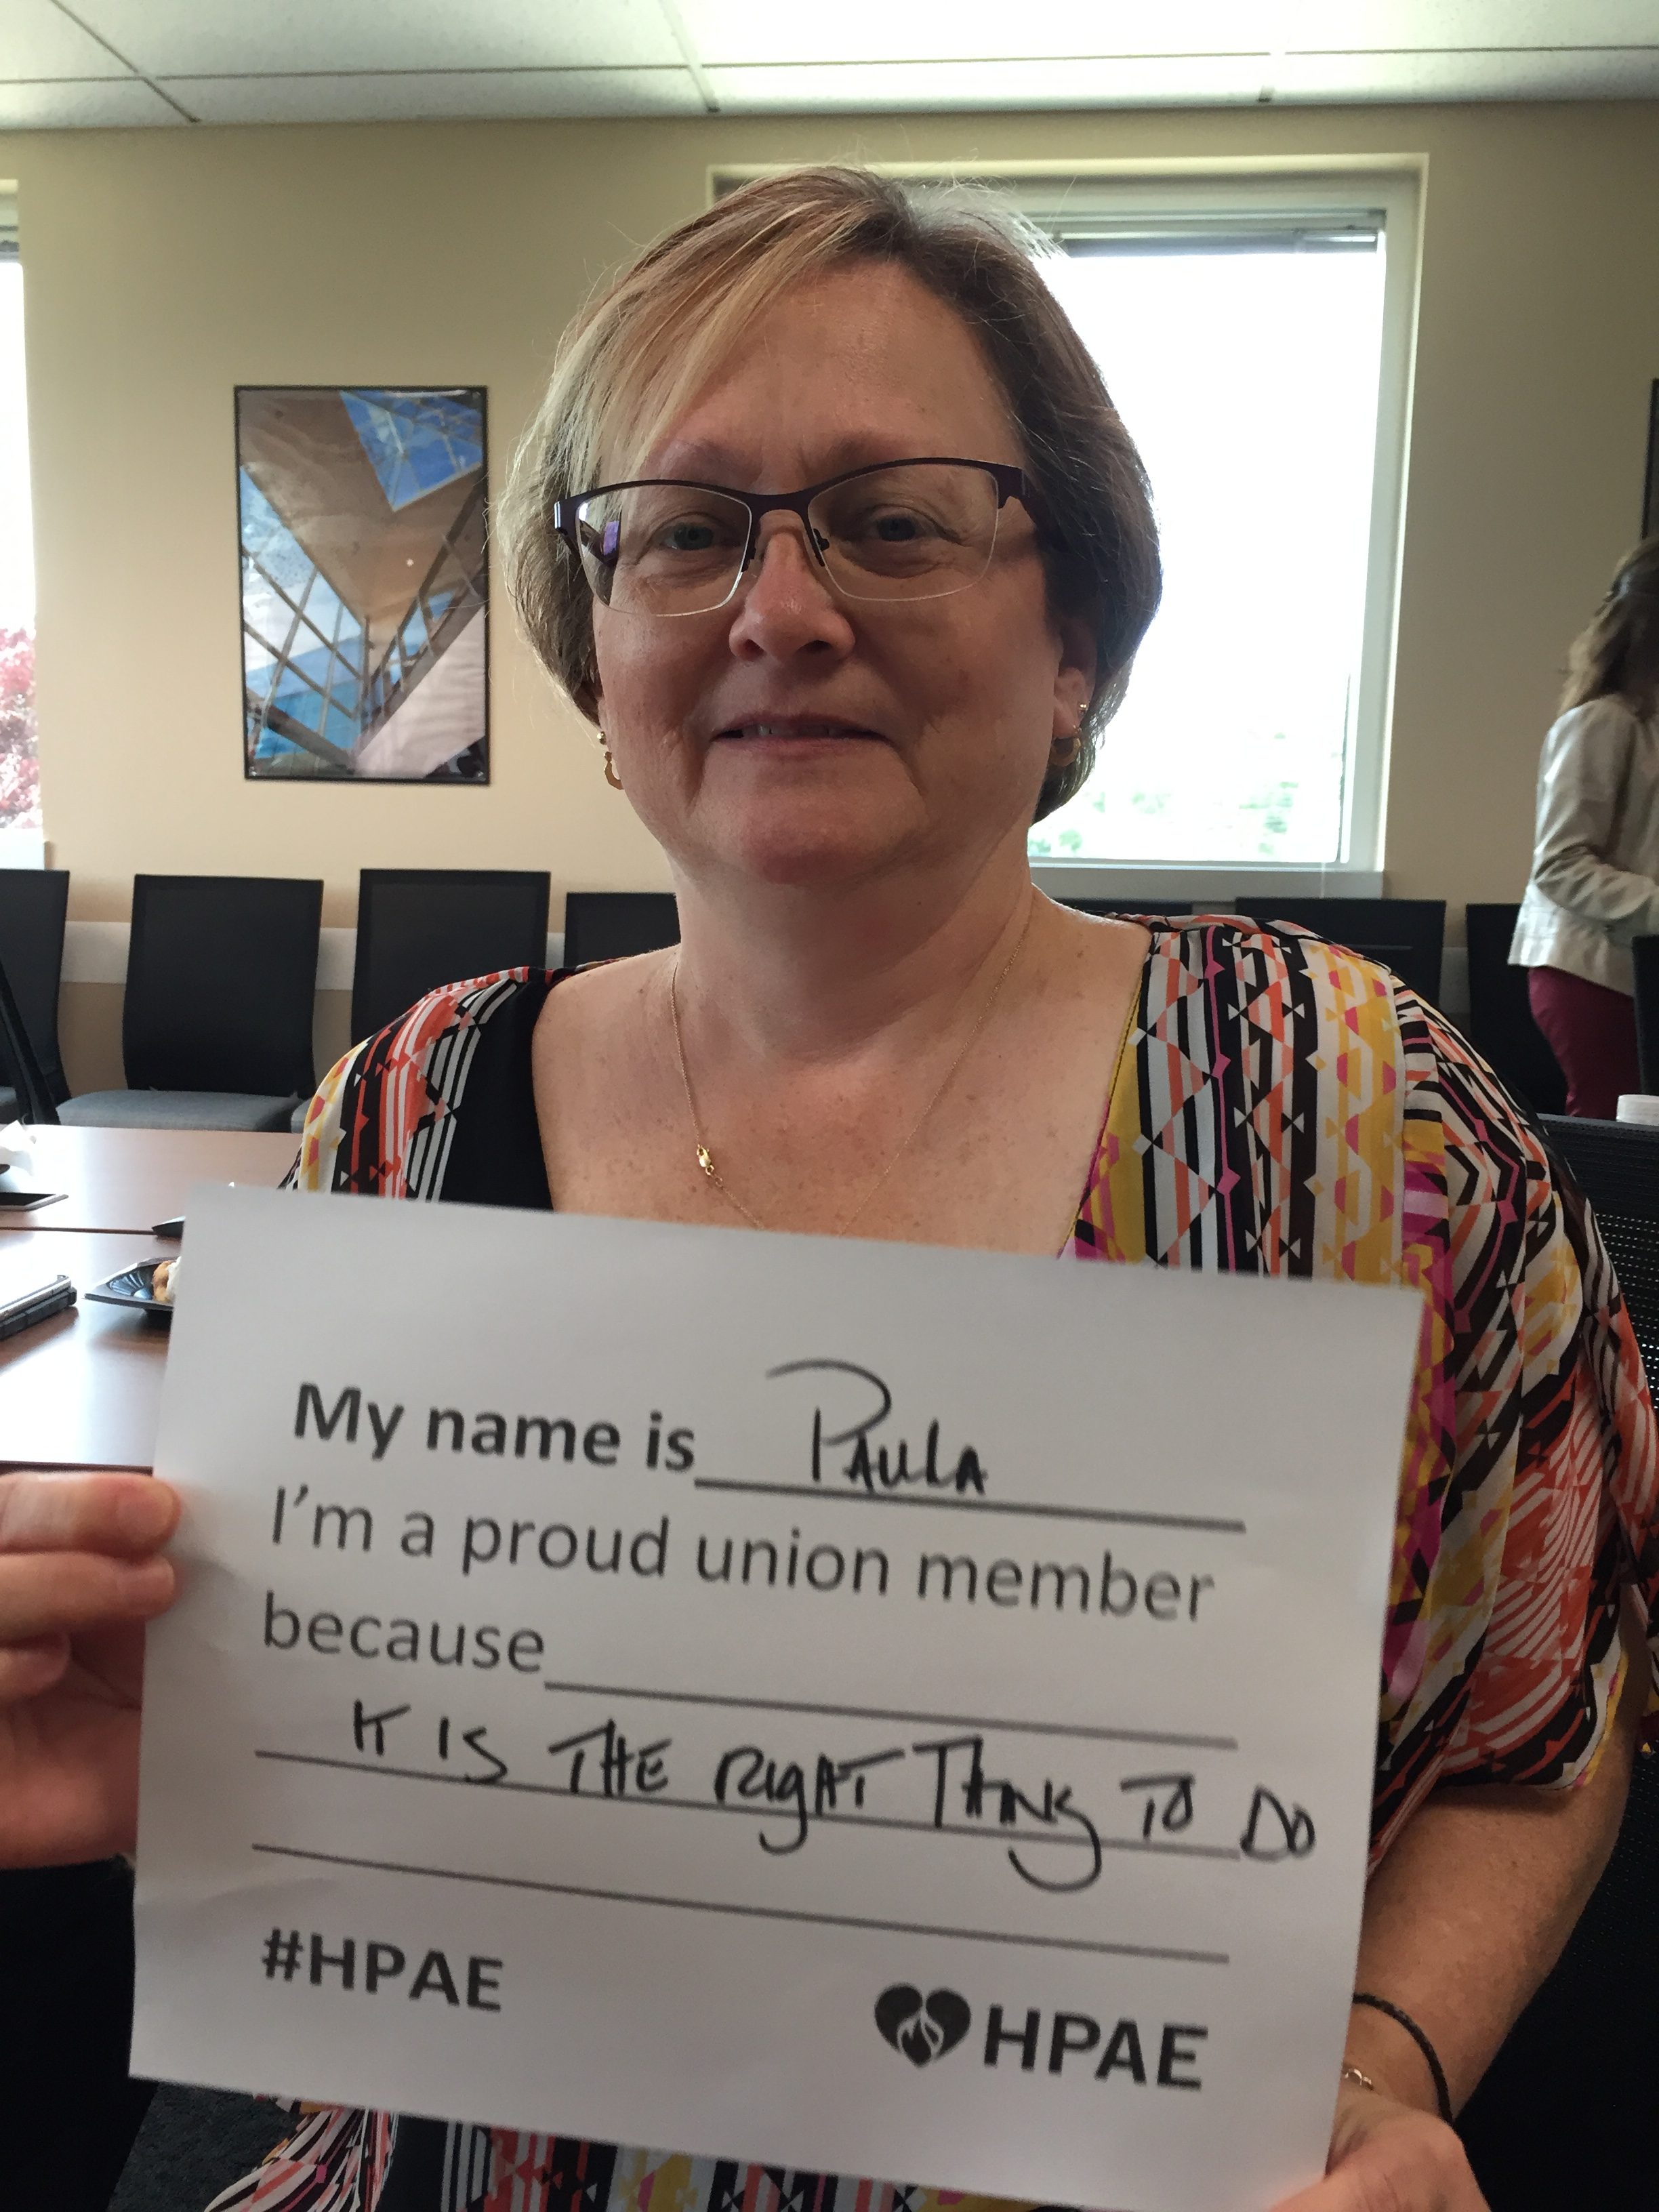 My name is PAULA
I'm a proud union member
because
IT IS THE RIGHT THING TO DO
#HPAE
HPAE